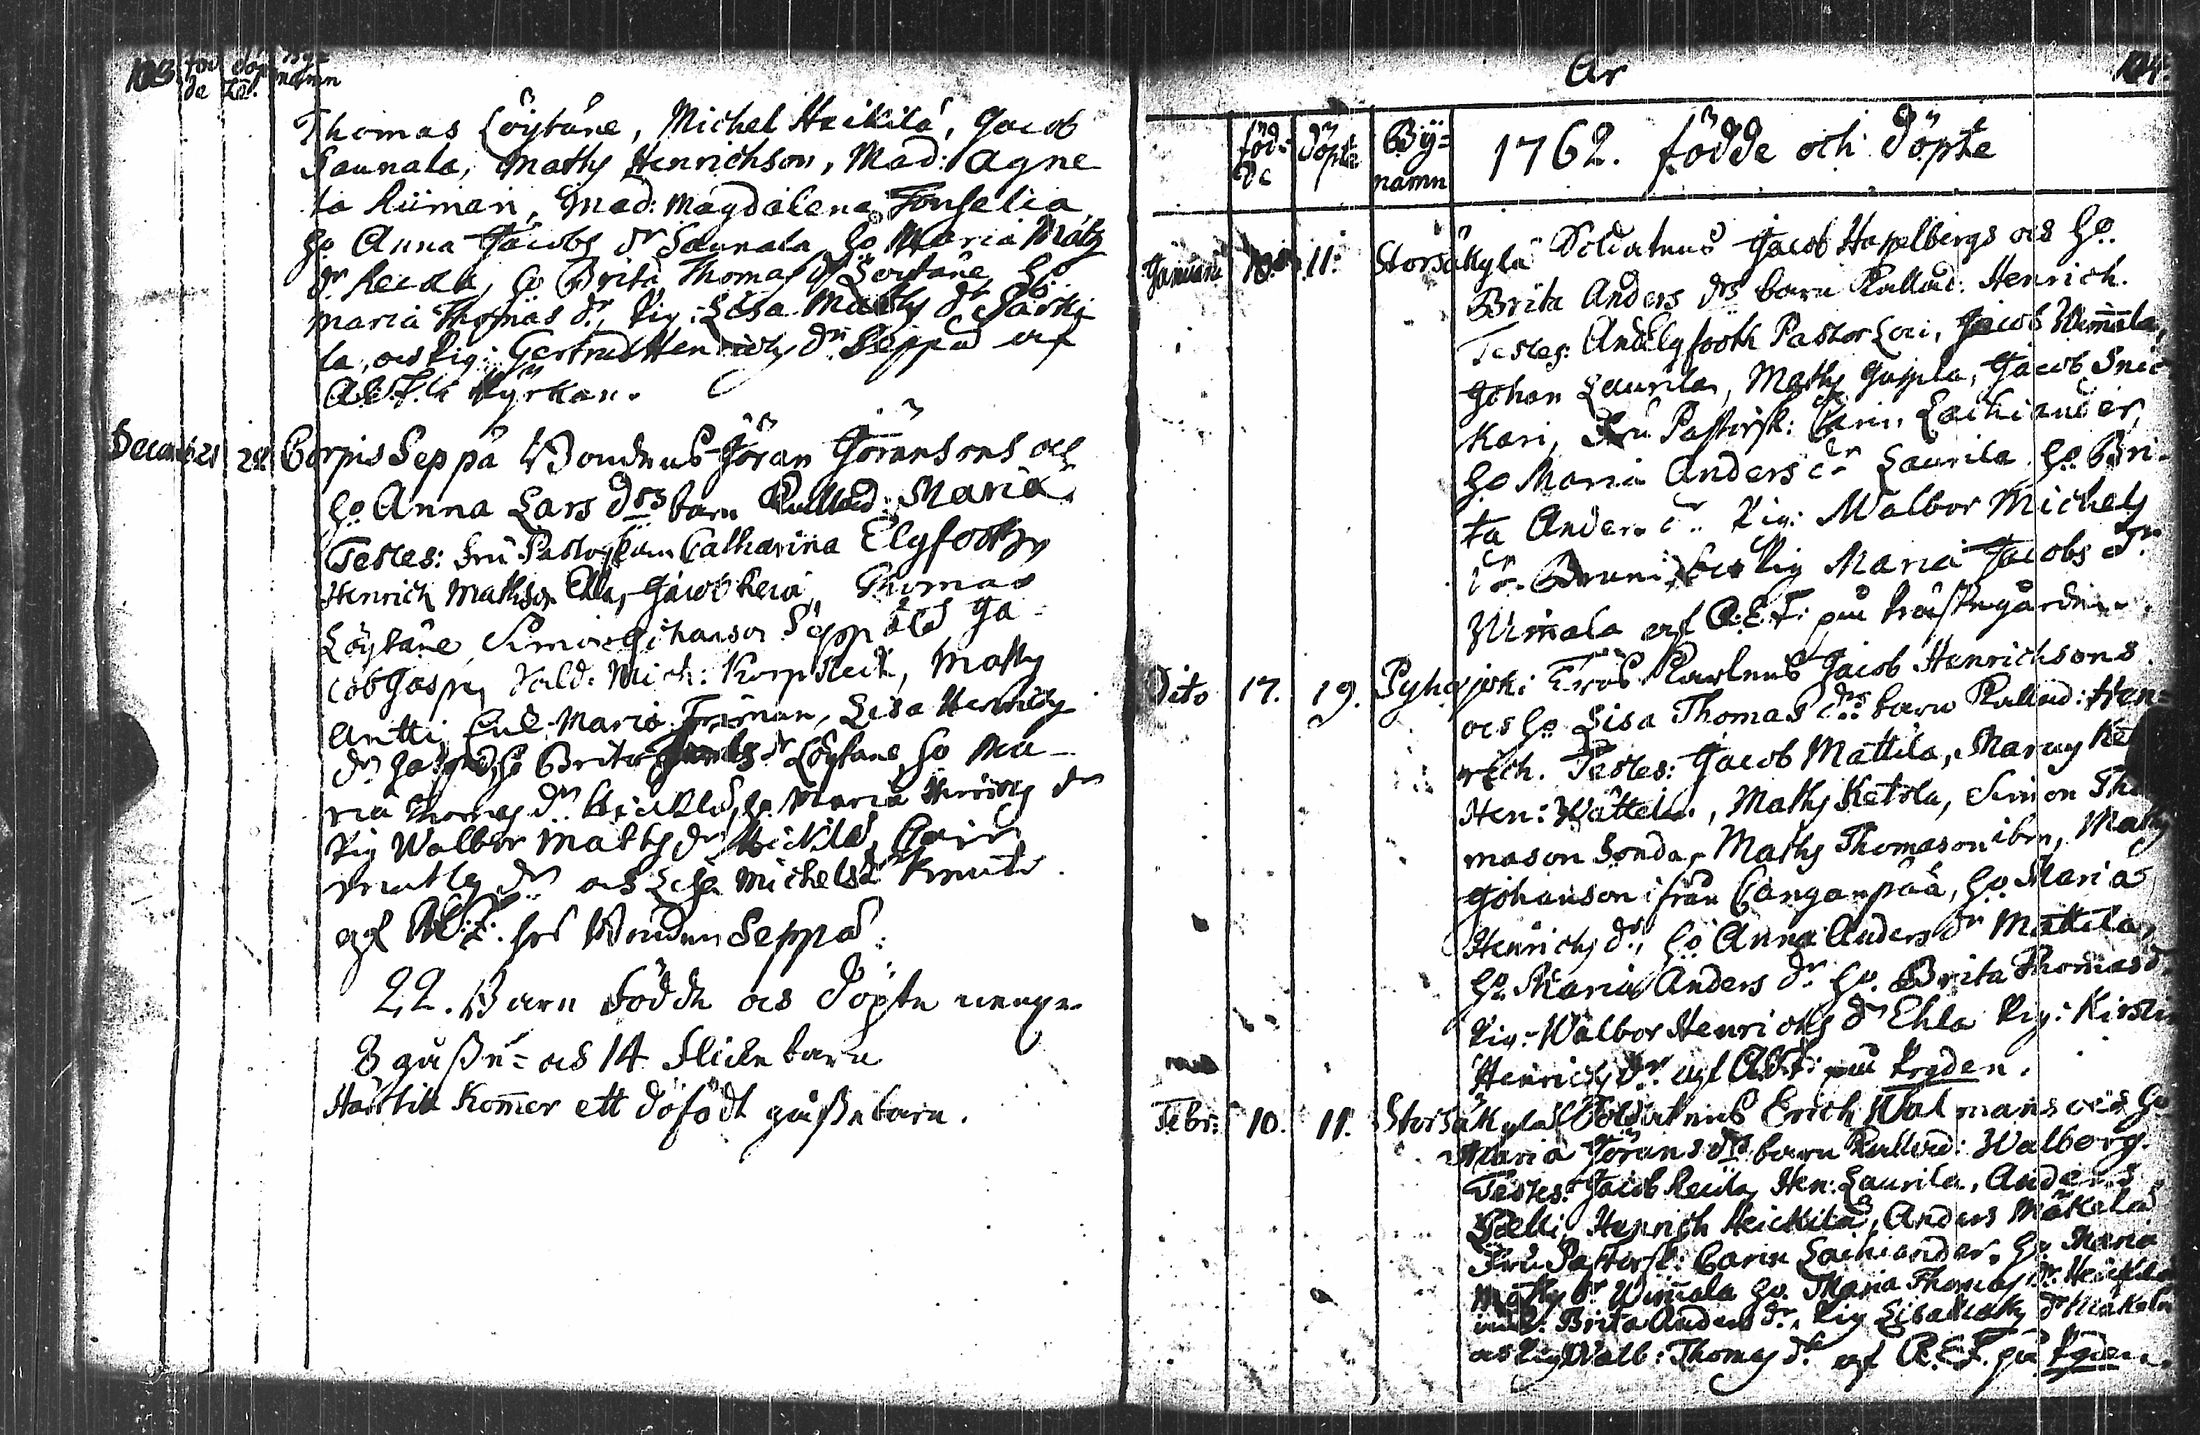 103. föd de döp te. Bye namn
Thomas Löytäne, Michel Heikilä, Jacob
Saunala, Mathy Henrichson, Mad: Agne
ta Riiman, Mad: Magdalena Fonselia
ho Anna Jacobs dr Saunala, ho Maria Matz
dr Recola, ho Brita Thomas dr Löytäne, ho
Maria Thomas dr, Pig: Lisa Mathy dr Särki
la, och Pig: Gertrud Henrichs dr Seppä af
A:E:F. i Kyrkan.
Decemb 21 22 Corpis Seppä Bondens Göran Göransons och
ho Anna Lars drs barn Kallad: Maria.
Testes: Fru Pastorskan Catharina Elgfooth,
Henrich Mathson Ehla, Jacob Reia, Thomas
Löytäne, Simon Johanson Seppälä Ja-
cob Jaspr, Sold: Mich: Korpholt, Mathy
Antti Enk. Maria Friman, Lisa Henrichs
dr ho Brita dr Löytäne, ho Ma-
ria Thomas dr Heickilä, ho Maria Henrichs dr
Pig Walbor Mathy dr Heickilä, Carin
Mathy dr och Lisa Michels dr Knuti.
af A:E:F. hos Bonden Seppä.
22. Barn Födde och Döpte
8 gåsse- och 14 Flicke barn
Härtill Kom̄er ett döfödt gåssebarn.
År 104.
föd- de döpte By- namn 1762. födde och döpte
Januari 10. 11. Storsäkylä Soldatens Jacob Haselbergs och ho.
Brita Anders drs barn Kallad: Henrich.
Testes: And: Elgfooth Pastor Loci, Jacob Wim̄ala,
Johan Laurila, Mathy Jussila, Jacob Snic
kari, Fru Pastorsk: Carin Laihiander,
ho Maria Anders dr Laurila, ho Bri-
ta Anders dr Pig: Walbor Michels
dr Bruni, och Pig Maria Jacobs dr
Wim̄ala af A:E:F: på Prästegården.
Dito 17. 19. Pyhäjoki Jacob Henrichsons
och ho Lisa Thomas drs barn Kallad: Hen-
rich. Testes: Jacob Mattila,
Hen: Wättelä, Mathy Ketola, Simon Tho
mason Sonda, Mathy Thomason ibm, Mathy
Johanson ifrån Canganpää, ho Maria
Henrichs dr, ho Anna Anders dr Mattila,
ho Maria Anders dr ho. Brita Thomas d.
Pig: Walbor Henrichs dr Ehla Pig: Kirstin
Henrichs dr af A:E:F: på Prgden.
Febr: 10. 11. Storsäkylä Soldatens Erich Walmans och ho
Maria Görans drs barn Kallad: Walborg.
Testes: Jacob Recila, Hen: Laurila, Anders
Henrich Heickilä, Anders Mäkelä
Fru Pastorsk: Carin Laihiander, ho Maria
Mathy dr Wim̄ala ho. Maria Thomas dr Heickilä
Brita Anders dr, Pig Lisa Mathy dr Mäkelä
och Pig Walb: Thomas dr af A.E.F. på Pgden.